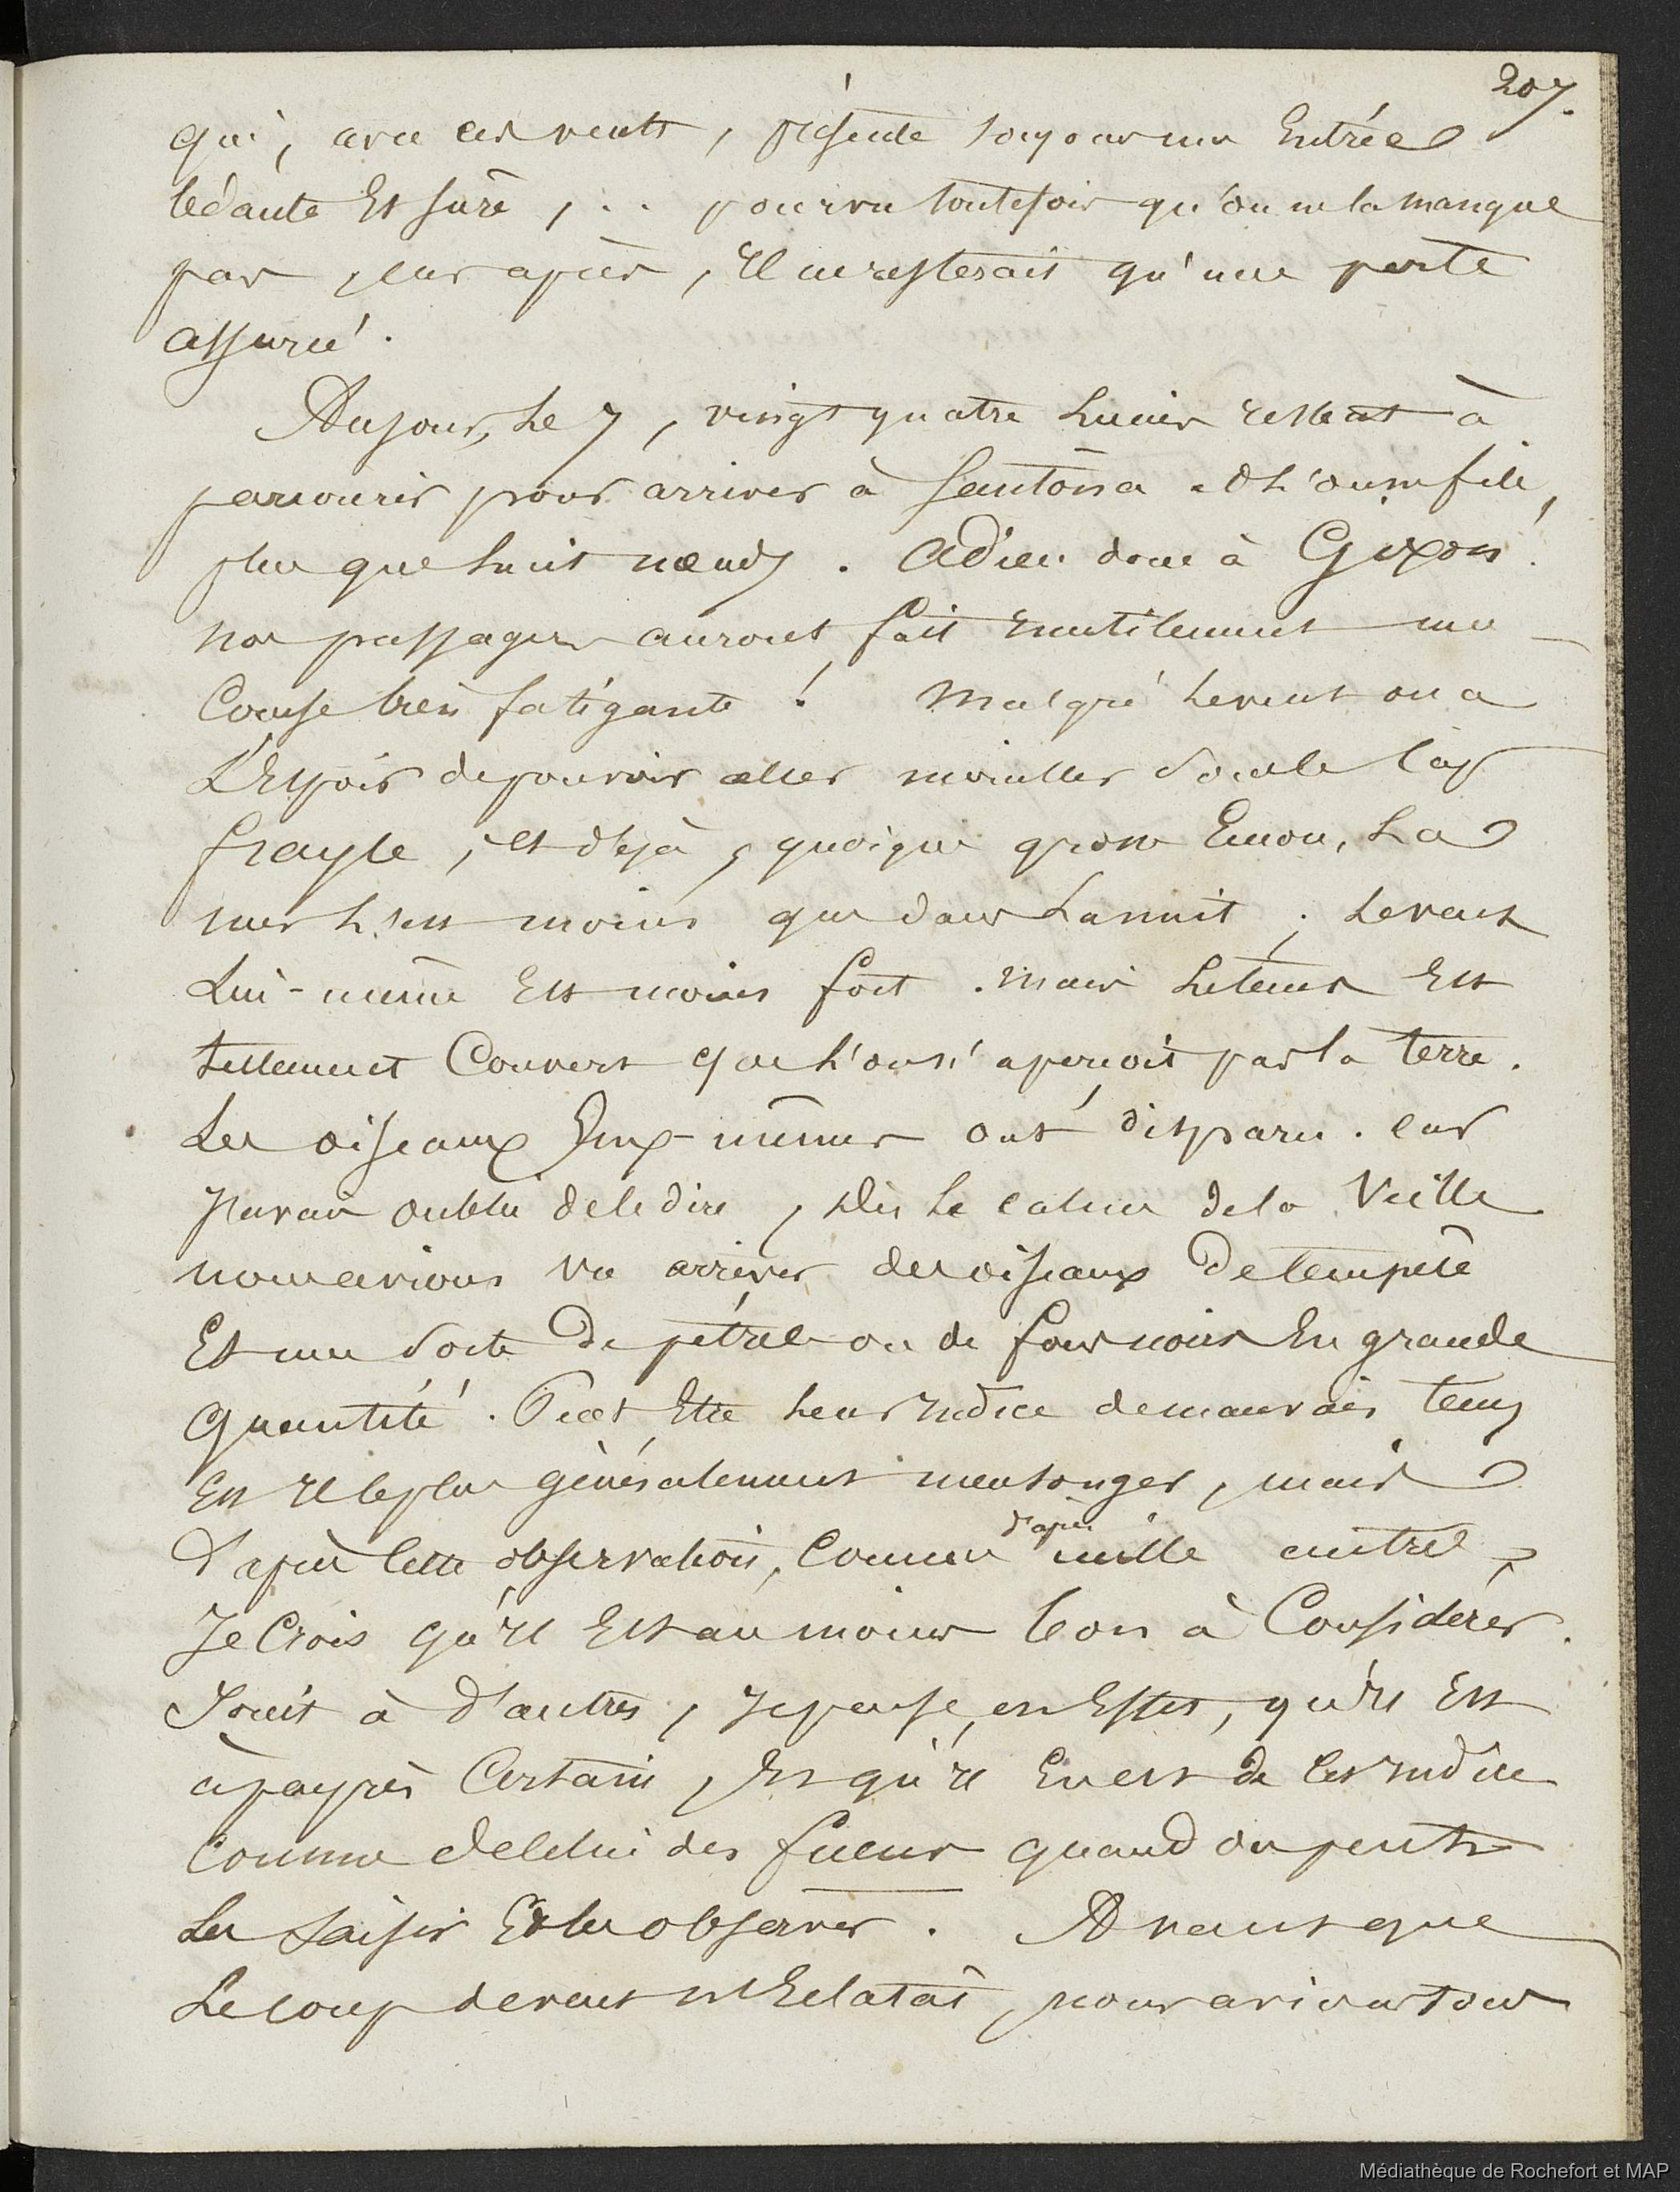 207.
qui, avec ces vents, présente toujours une Entrée
cédante Et sûre, ... pourvu toutefois qu'on ne la manque
pas, car après, Il ne resterait qu'une perte
assurée.
Au jour, le 7, vingt quatre lieues restent à
parcourir pour arriver à Santona et l'on ne file,
plus que huit nœuds. Adieu donc à Gixon!
nos passagers auront fait inutilement une
Course bien fatigante! Malgré le vent on a
L'Espoir de pouvoir aller mouiller sous le Cap
frayle, et déjà, quoique grosse Encor, La
mer L'est moins que dans La nuit; Le vent
Lui-même Est moins fort. mais Le temps Est
tellement Couvert que L'on n'aperçoit pas la terre.
Les oiseaux Eux-mêmes ont disparu. car
J'avais oublié de le dire, Dès Le calme de la Veille
nous avions vu arriver des oiseaux De tempête
Et une sorte De pétrel ou de fous noirs En grande
quantité. Peut Etre Leur Indice de mauvais temps
Est Il le plus généralement mensonger, mais
d'après cette observation, Comme d'après mille autres,
Je Crois qu'Il Est au moins bon à Considérer.
Joint à d'autres, Je pense, en Effet, qu'Il Est
à peu près Certain, Et qu'Il En est de Cet Indice
comme de celui des fucus quand on peut
Les Saisir Et les observer. Avant que
Le coup de vent n'Eclatât, nous avions tous
Médiathèque de Rochefort et MAP